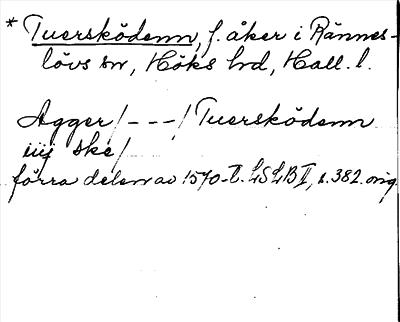 * Tuersködenn, f. åker i Rännes-
lövs sn, Höks hd, Hall. l.
Agger/---/Tuersködenn
iiij ske/
förra delen av 1570-t. LSLB II, s. 382. orig.